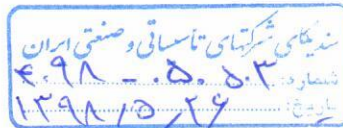 سندیکای شرکتهای تأسیساتی و صنعتی ایران
شماره: ۴۰۹۸ - ۵۰۵۰۳
تاریخ: ۱۳۹۸/۵/۲۶